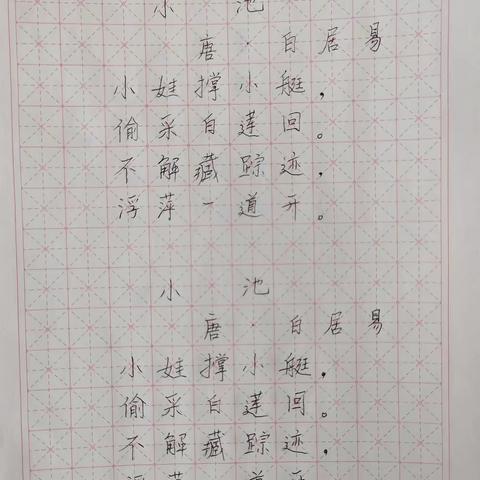 小池
唐·白居易
小娃撑小艇，
偷采白莲回。
不解藏踪迹，
浮萍一道开。
小池
唐·白居易
小娃撑小艇，
偷采白莲回。
不解藏踪迹，
浮萍一道开